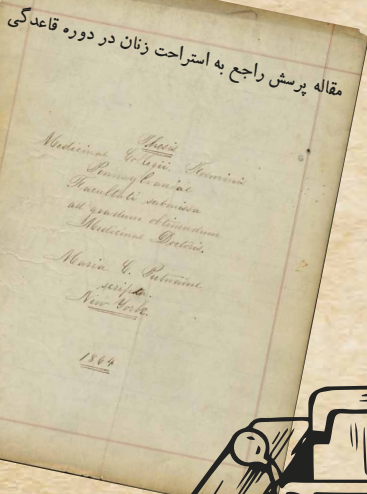 مقاله پرسش راجع به استراحت زنان در دوره قاعدگی
Thesis
Medicinae Collegii Feminii
Pennsylvaniae
Facultati submissa
ad gradum obtinendum
Medicinae Doctoris.
Maria C. Putnaine
scripta.
New York.
1864